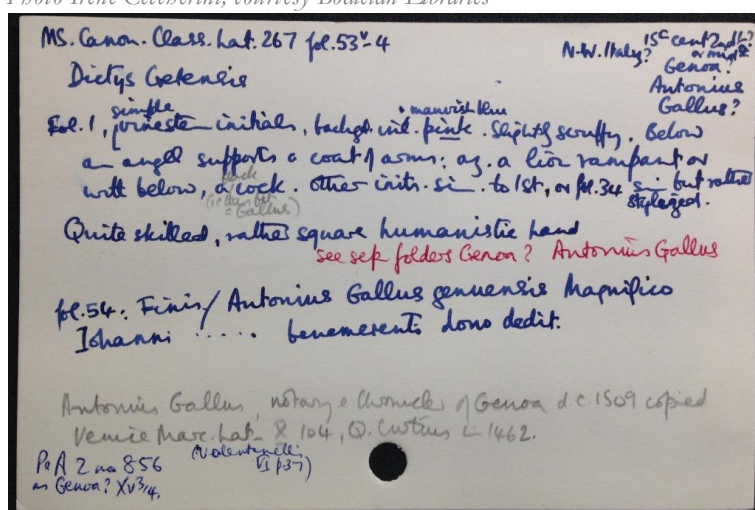 Photo Irene Ceccherini, courtesy Bodleian Libraries
MS. Canon. Class. Lat. 267 fol. 53v-4
N-W. Italy? 15c cent 2nd ½?
Genoa?
Antonius
Gallus?
Dictys Cretensis
simple
Fol. 1, vinestem initials, backgd. incl. pink. Slightly scruffy. Below
an angel supports a coat of arms: az. a lion rampant or
with below, a cock. Other inits. sim. to 1st, or fol. 34 sim but rather
= Gallus)
Quite skilled, rather square humanistic hand
see sep folders Genoa? Antonius Gallus
fol. 54: Finis / Antonius Gallus genuensis Magnifico
Iohanni ..... benemerenti dono dedit.
Antonius Gallus, notary & chronicler of Genoa d c. 1509 copied
Venice Marc. Lat. X 104, Q. Curtius in 1462.
(Valentinelli
VI p. 37)
P & A 2 no 856
as Genoa? XV 3/4.